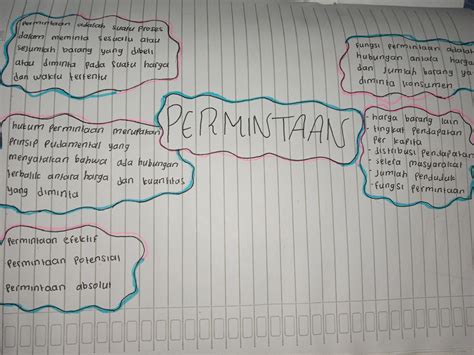 permintaan adalah suatu proses
dalam meminta sesuatu atau
sejumlah barang yang dibeli
atau diminta pada suatu harga
dan waktu tertentu
PERMINTAAN
fungsi permintaan adalah
hubungan antara harga
dan jumlah barang yg
diminta konsumen
hukum permintaan merupakan
prinsip fudamental yang
menyatakan bahwa ada hubungan
terbalik antara harga dan kuantitas
yang diminta
- harga barang lain
- tingkat pendapatan
per kapita
- distribusi pendapatan
- selera masyarakat
- jumlah penduduk
- fungsi permintaan
permintaan efektif
permintaan potensial
permintaan absolut